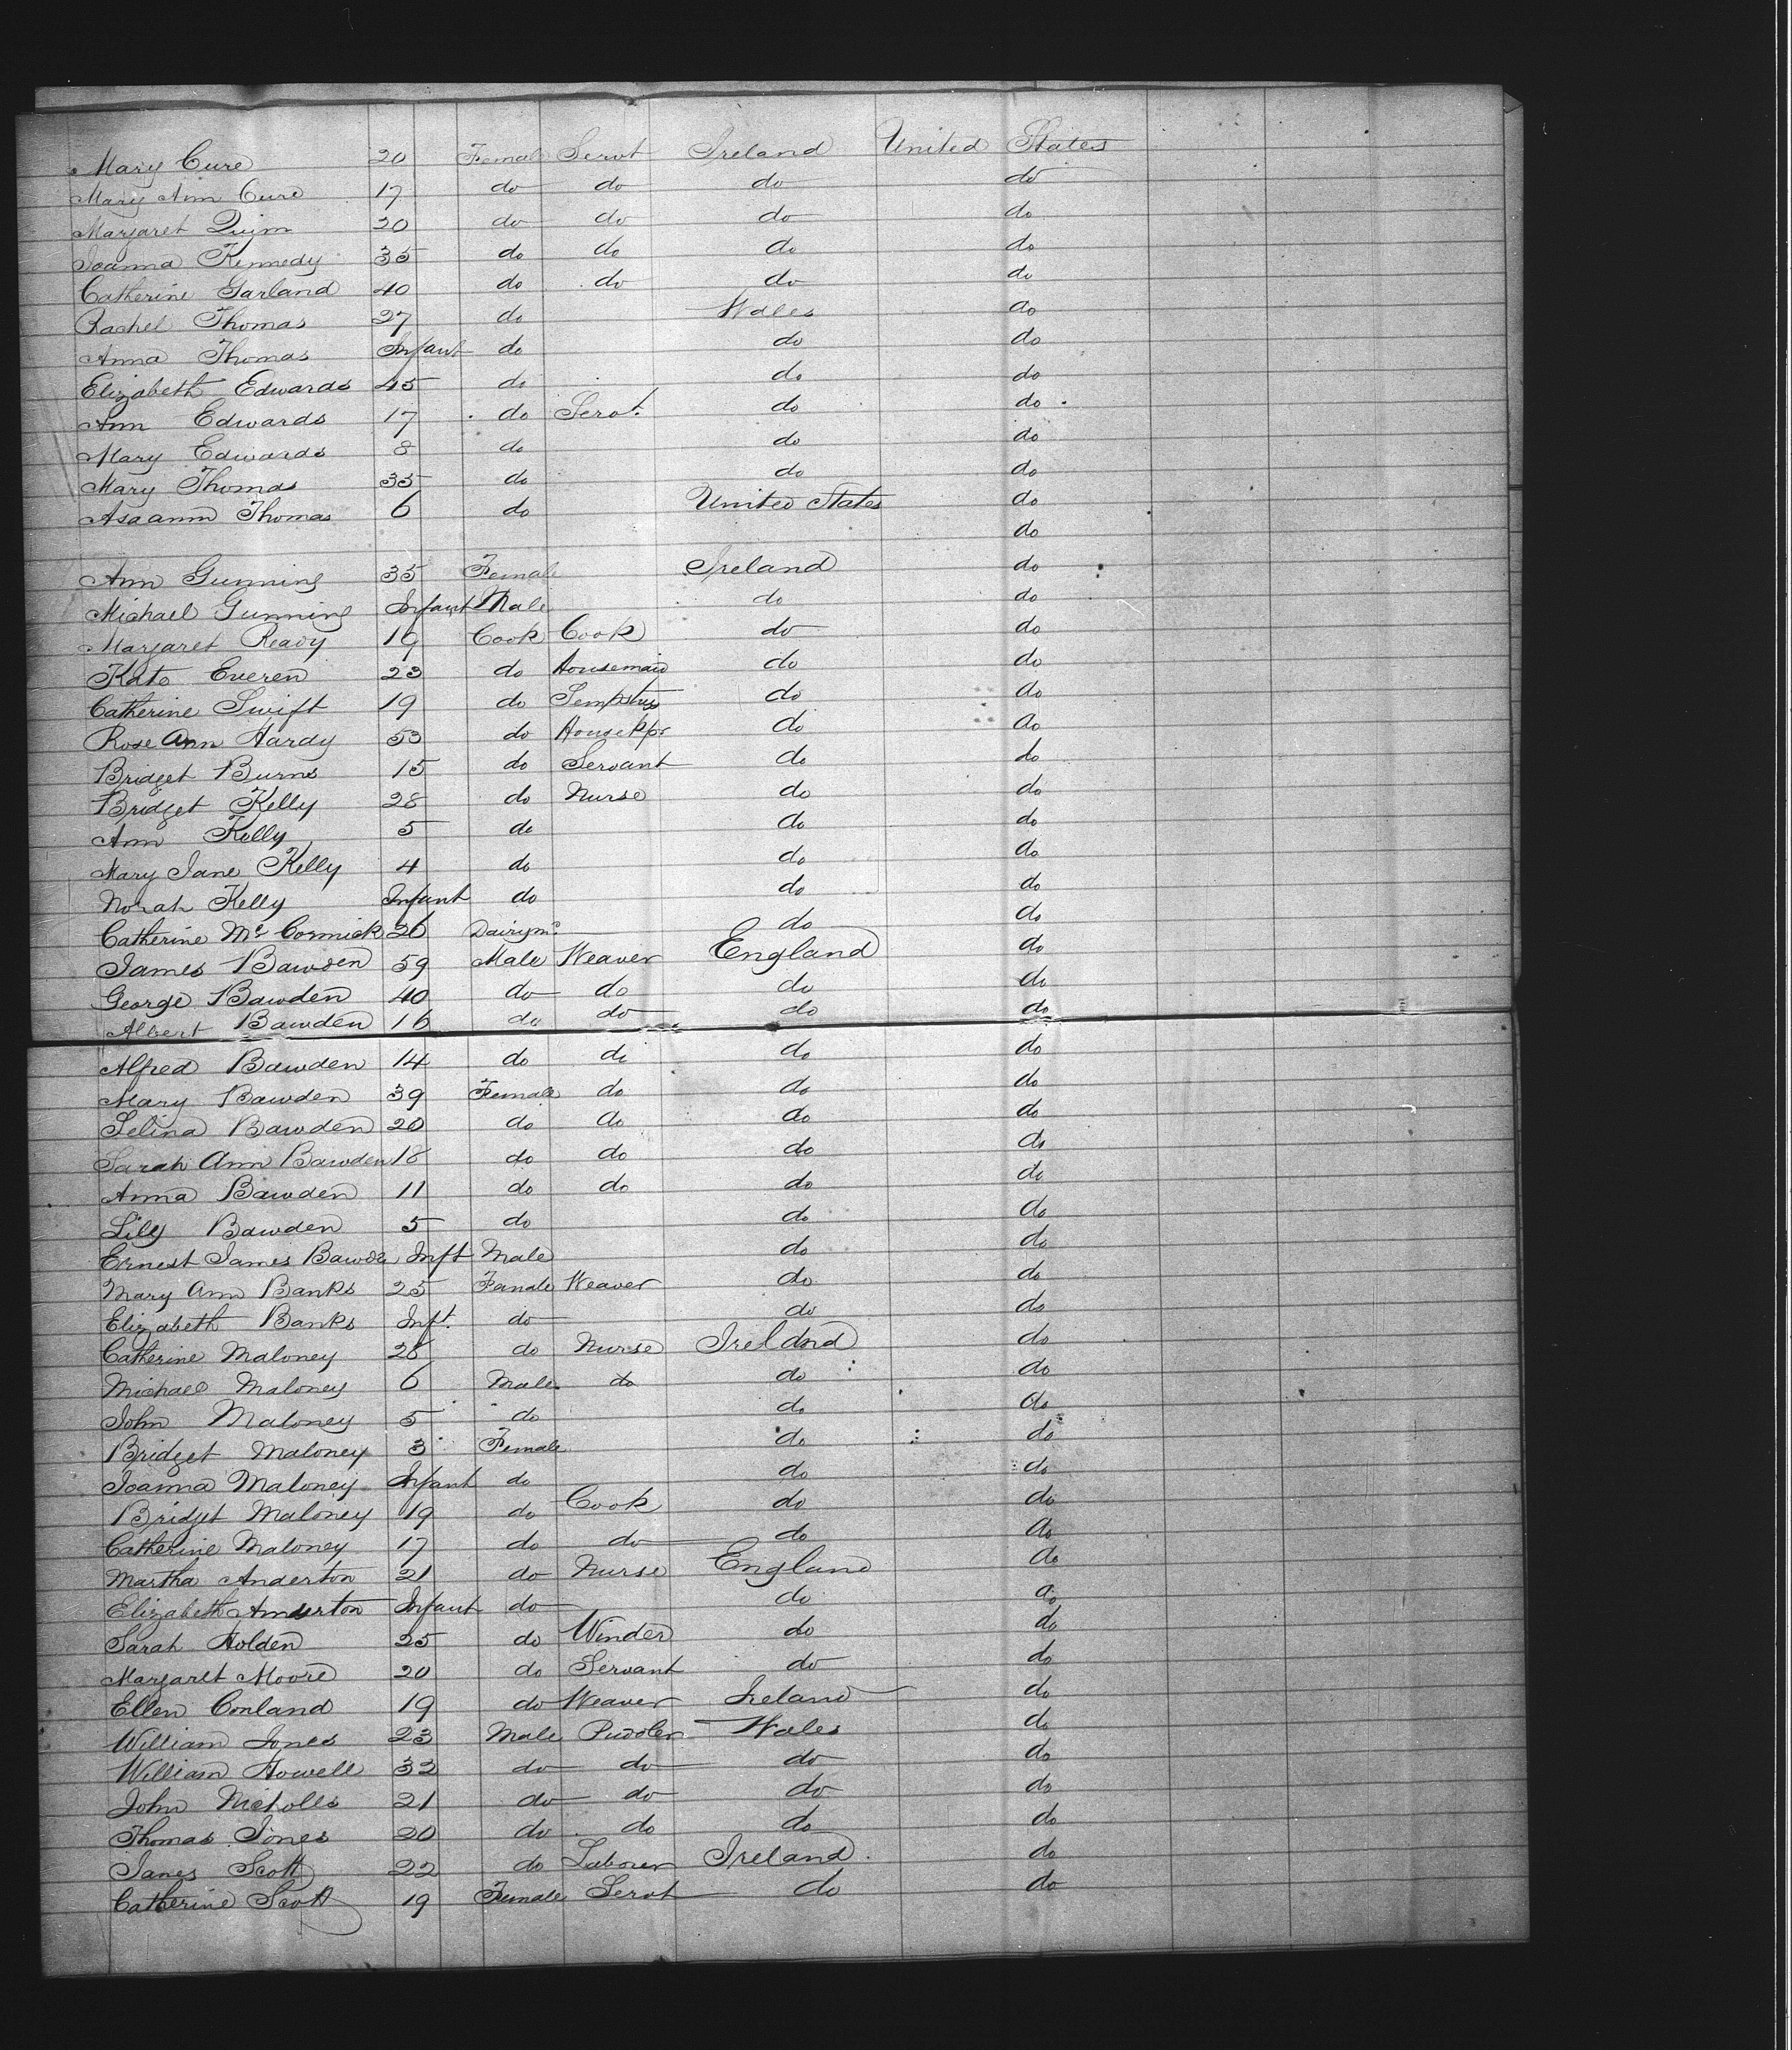 Mary Cure 20 Female Servt Ireland United States
Mary Ann Cure 17 do do do do
Margaret Quinn 20 do do do do
Joanna Kennedy 35 do do do do
Catherine Garland 40 do do do do
Rachel Thomas 27 do Wales do
Anna Thomas Infant do do do
Elizabeth Edwards 45 do do do
Ann Edwards 17 do Servt. do do
Mary Edwards 8 do do do
Mary Thomas 35 do do do
Asaann Thomas 6 do United States do
do
Ann Gunning 35 Female Ireland do
Michael Gunning Infant Male do do
Margaret Ready 19 Cook Cook do do
Kate Everen 23 do Housemaid do do
Catherine Swift 19 do Sempstrss do do
Rose Ann Hardy 53 do Housekpr do do
Bridget Burns 15 do Servant do do
Bridget Kelly 28 do Nurse do do
Ann Kelly 5 do do do
Mary Jane Kelly 4 do do do
Norah Kelly Infant do do do
Catherine Mc Cormick 26 Dairym do do
James Bawden 59 Male Weaver England do
George Bawden 40 do do do do
Albert Bawden 16 do do do do
Alfred Bawden 14 do do do do
Mary Bawden 39 Female do do do
Selina Bawden 20 do do do do
Sarah Ann Bawden 18 do do do do
Anna Bawden 11 do do do do
Lily Bawden 5 do do do
Ernest James Bawdn Inft Male do do
Mary Ann Banks 25 Female Weaver do do
Elizabeth Banks Inft. do do do
Catherine Maloney 28 do Nurse Ireland do
Michael Maloney 6 Male do do do
John Maloney 5 do do do
Bridget Maloney 3 Female do do
Joanna Maloney Infant do do do
Bridget Maloney 19 do Cook do do
Catherine Maloney 17 do do do do
Martha Anderton 21 do Nurse England do
Elizabeth Anderton Infant do do do
Sarah Holden 25 do Winder do do
Margaret Moore 20 do Servant do do
Ellen Conland 19 do Weaver Ireland do
William Jones 23 Male Puddler Wales do
William Howell 32 do do do do
John Nicholls 21 do do do do
Thomas Jones 20 do do do do
James Scott 22 do Laborer Ireland do
Catherine Scott 19 Female Servt do do